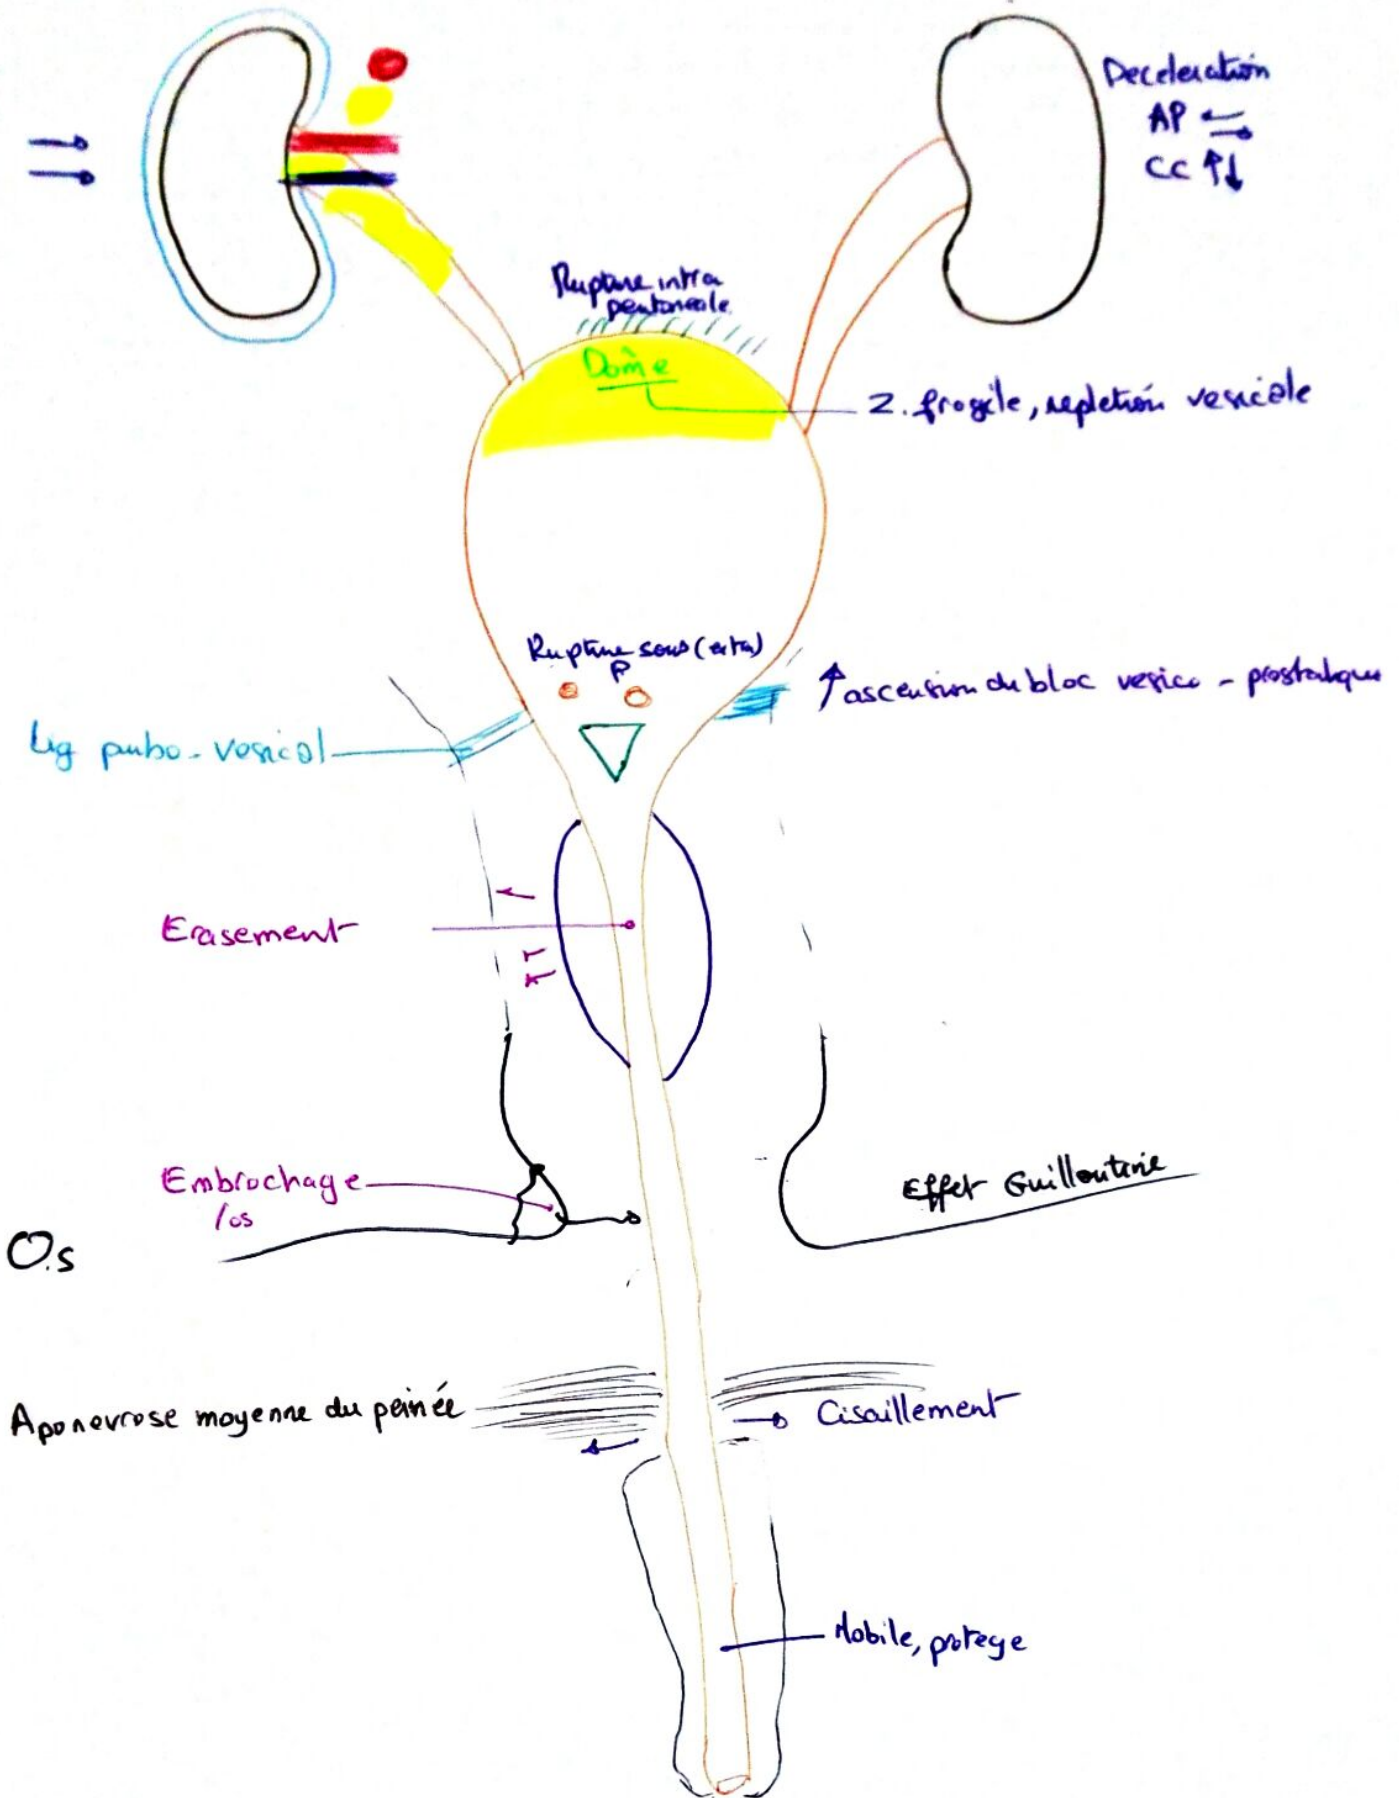 Deceleration
AP
CC
Rupture intra
peritoneale
Dôme
Z. fragile, repletion vesicale
Rupture sous (extra)
P
ascension du bloc vesico - prostatique
Lig pubo-vesical
Erasement
Embrochage
/os
Effet Guilloutine
Os
Aponevrose moyenne du peinée
Cisaillement
Mobile, protege